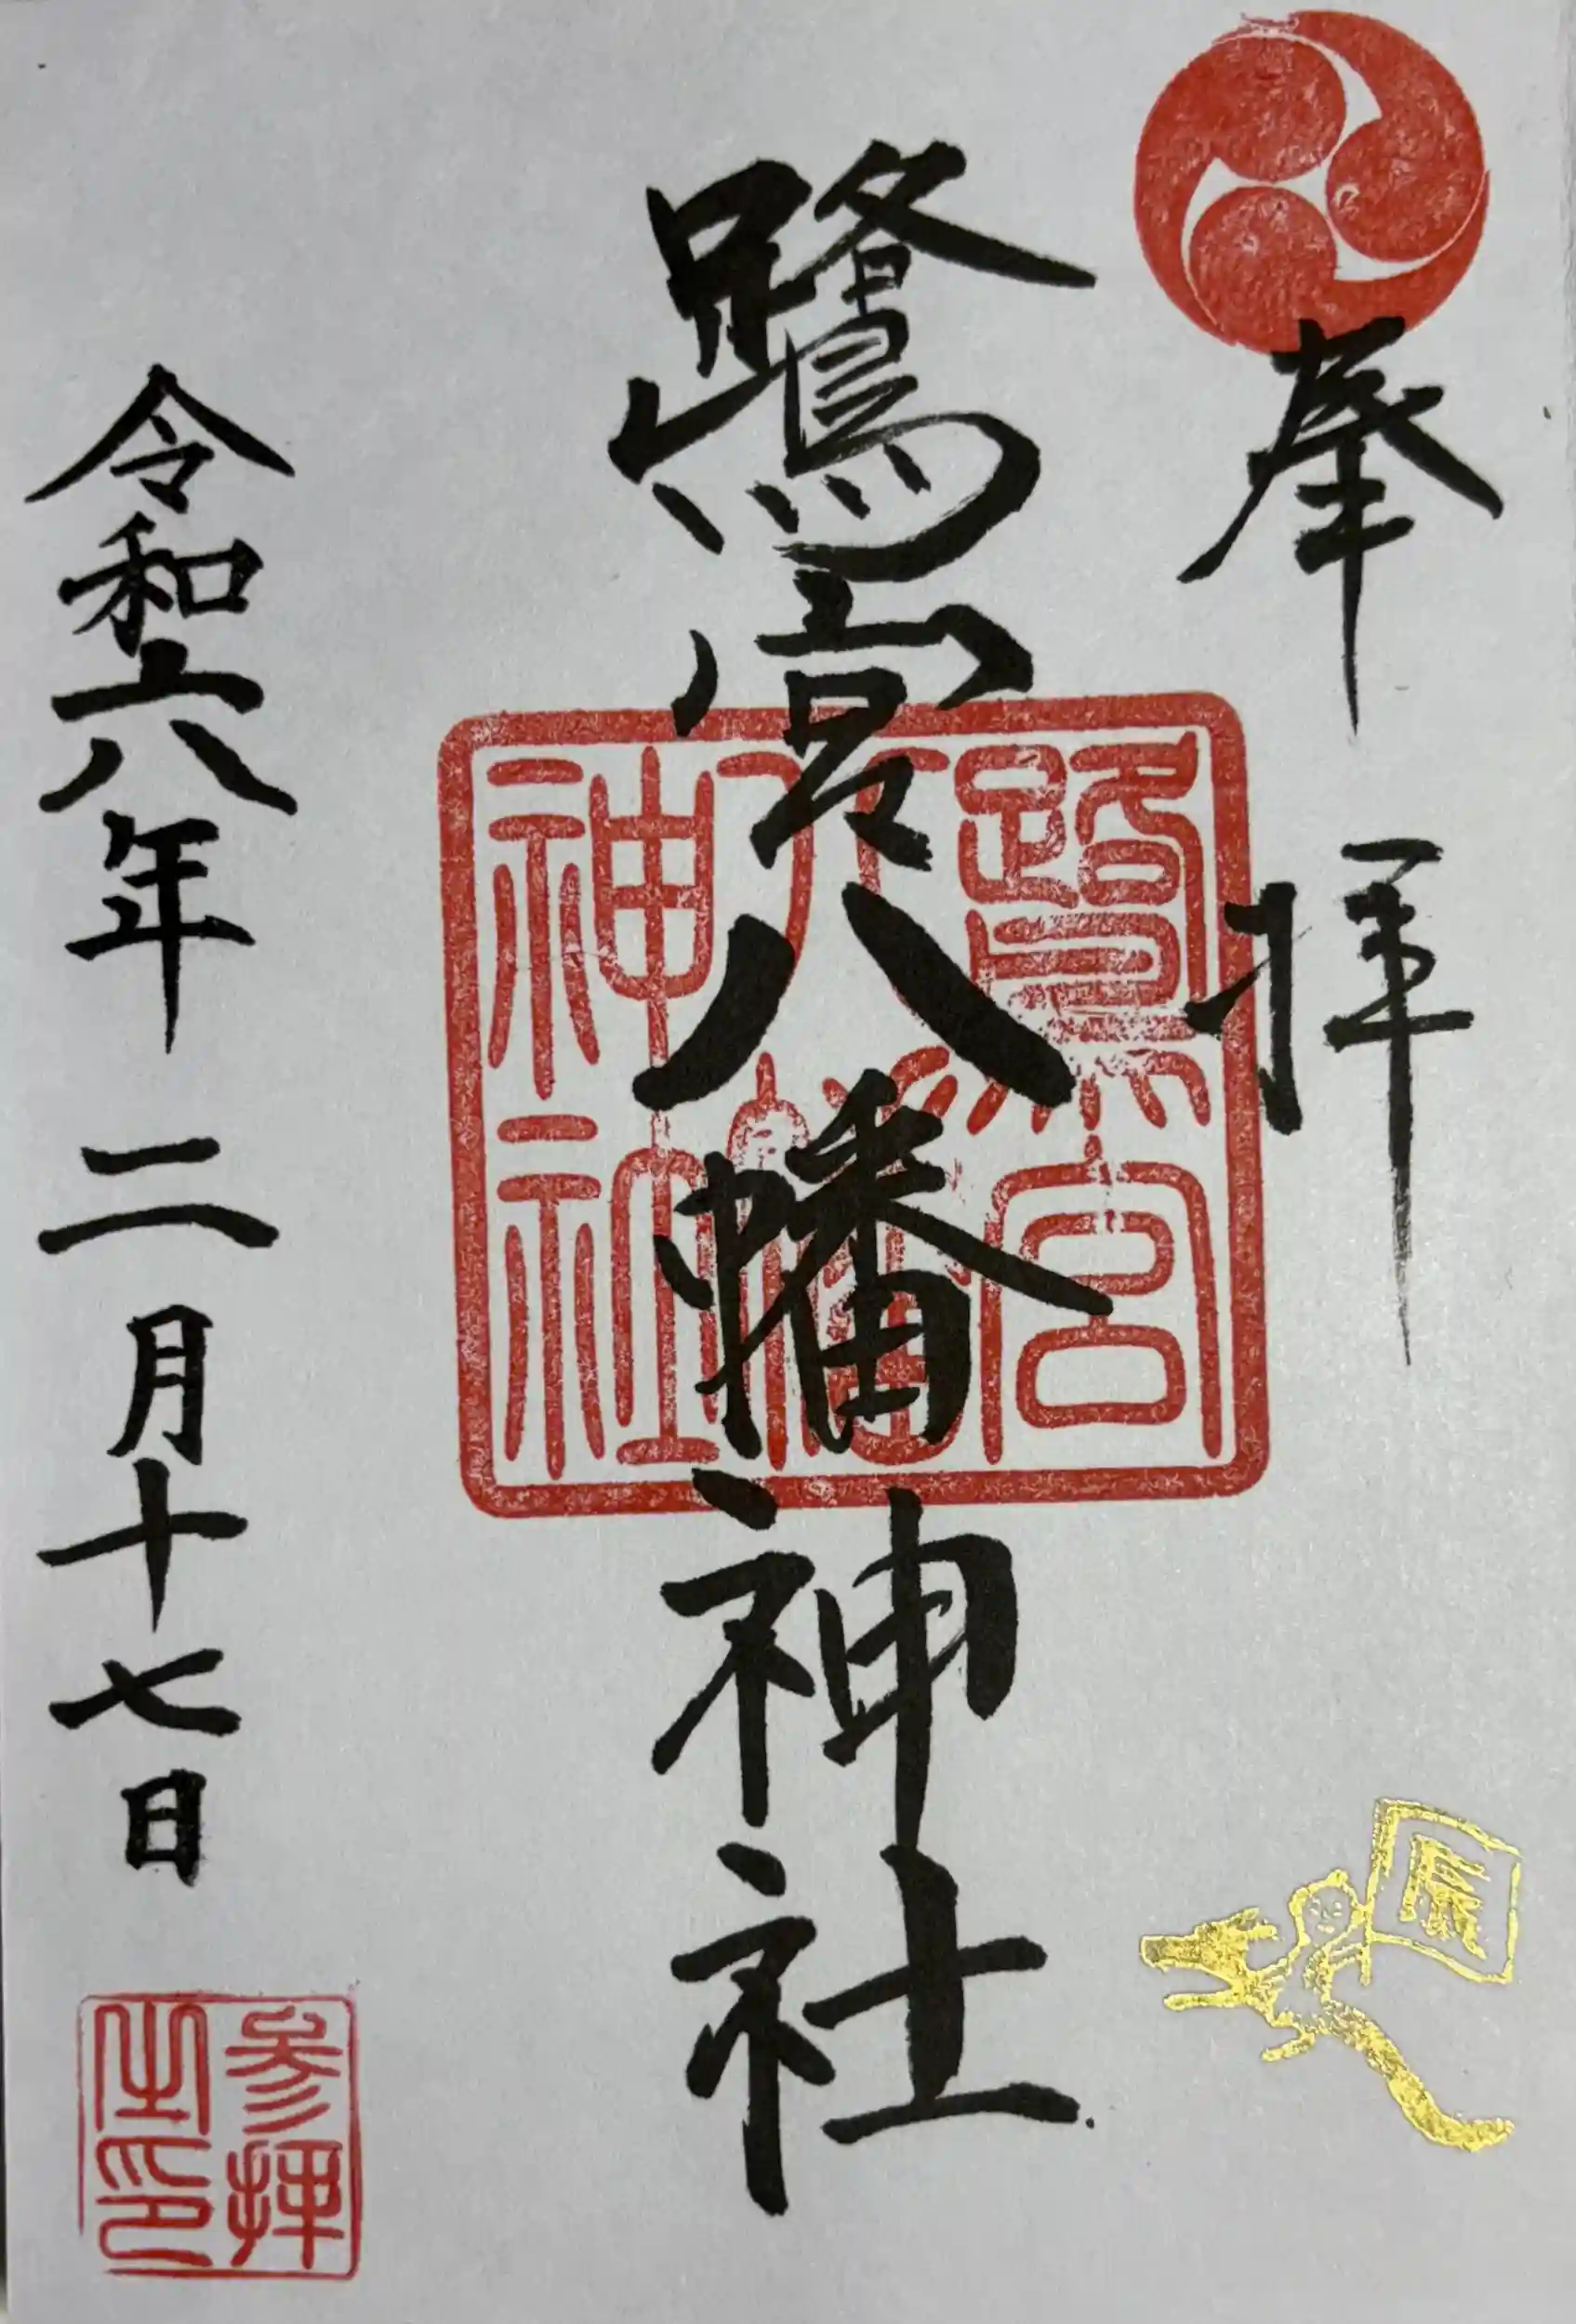 奉拝
鷺宮八幡神社
鷺宮
八幡
神社
令和六年二月十七日
参拝
之印
辰